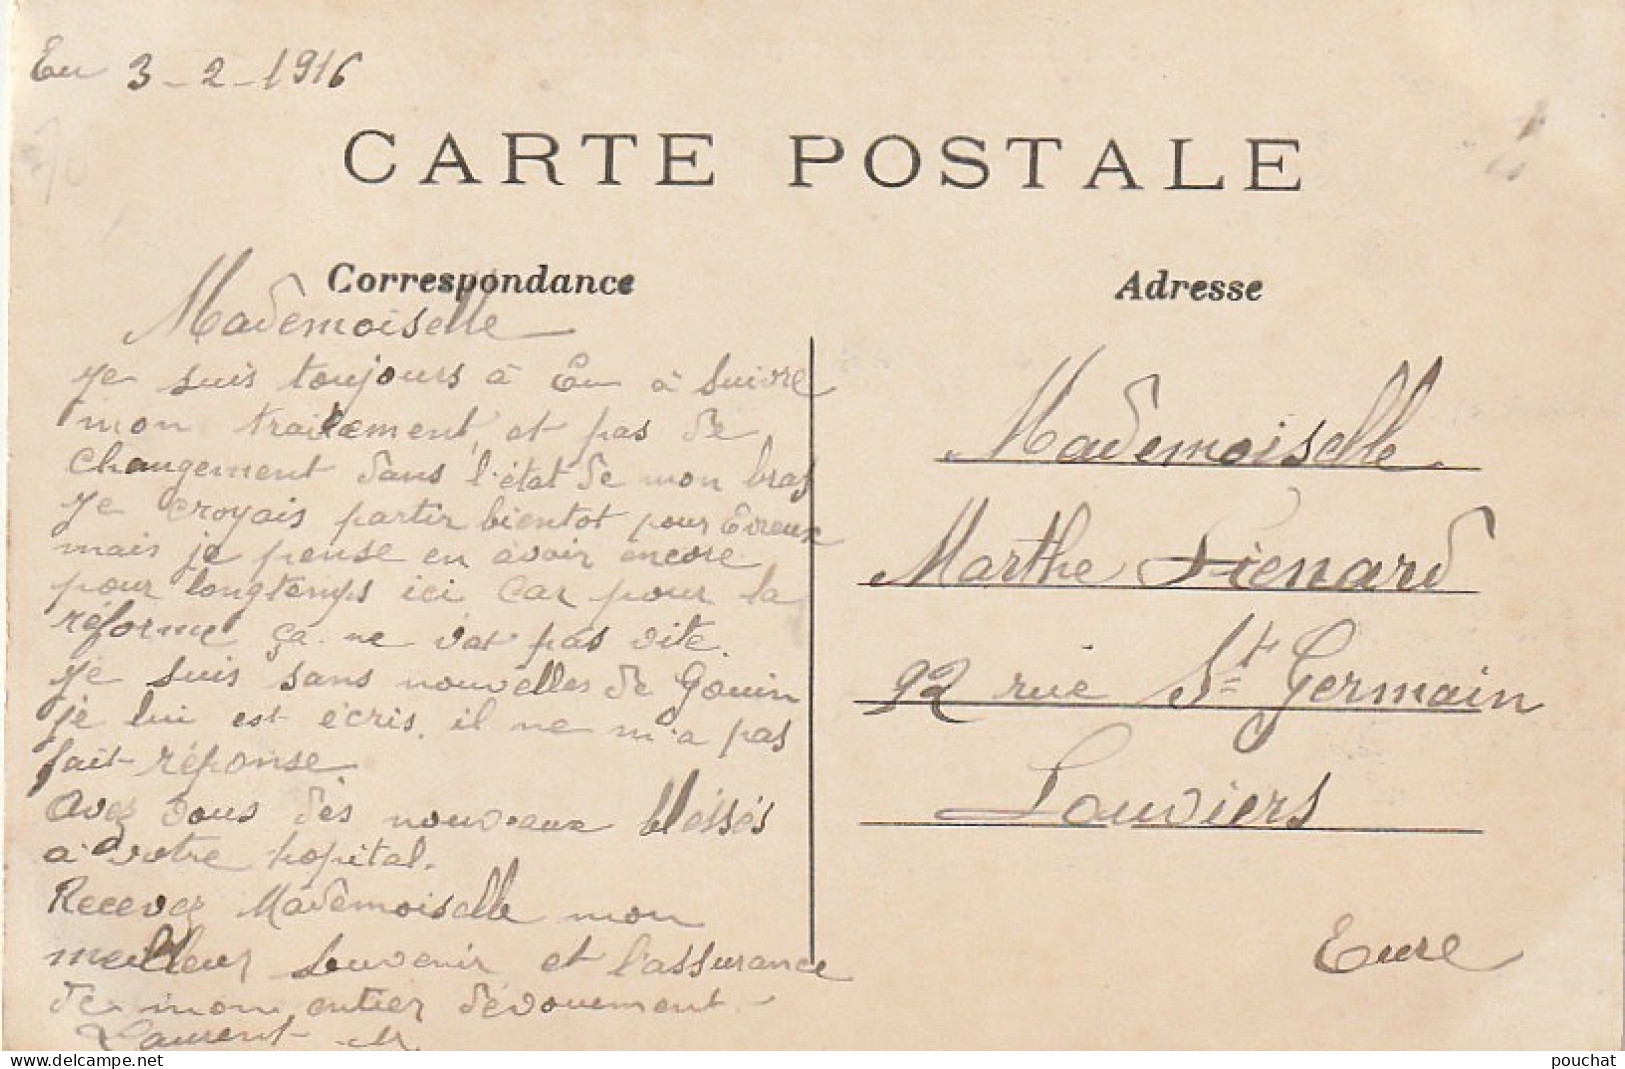 Eu 3-2-1916
CARTE POSTALE
Correspondance
Mademoiselle
Je suis toujours à Eu à suivre
mon traitement, et pas de
changement dans l'état de mon bras
Je croyais partir bientot pour Evreux
mais je pense en avoir encore
pour longtemps ici car pour la
réforme ça ne vat pas vite.
Je suis sans nouvelles de Gouin
je lui est écris, il ne m'a pas
fait réponse.
Avez vous des nouveaux bléssés
à votre hopital.
Recevez Mademoiselle mon
meilleur souvenir et l'assurance
de mon entier dévouement
Laurent M
Adresse
Mademoiselle
Marthe Lienard
92 rue St Germain
Louviers
Eure
delcampe.net
pouchat